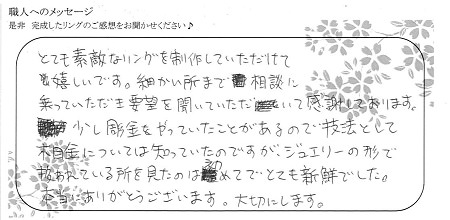 職人へのメッセージ
是非 完成したリングのご感想をお聞かせください♪
とても素敵なリングを制作していただけて
嬉しいです。細かい所まで相談に
乗っていただき要望を聞いていただいて感謝しております。
少し彫金をやっていたことがあるので技法として
木目金については知っていたのですが、ジュエリーの形で
扱われている所を見たのは初めてでとても新鮮でした。
本当にありがとうございます。大切にします。